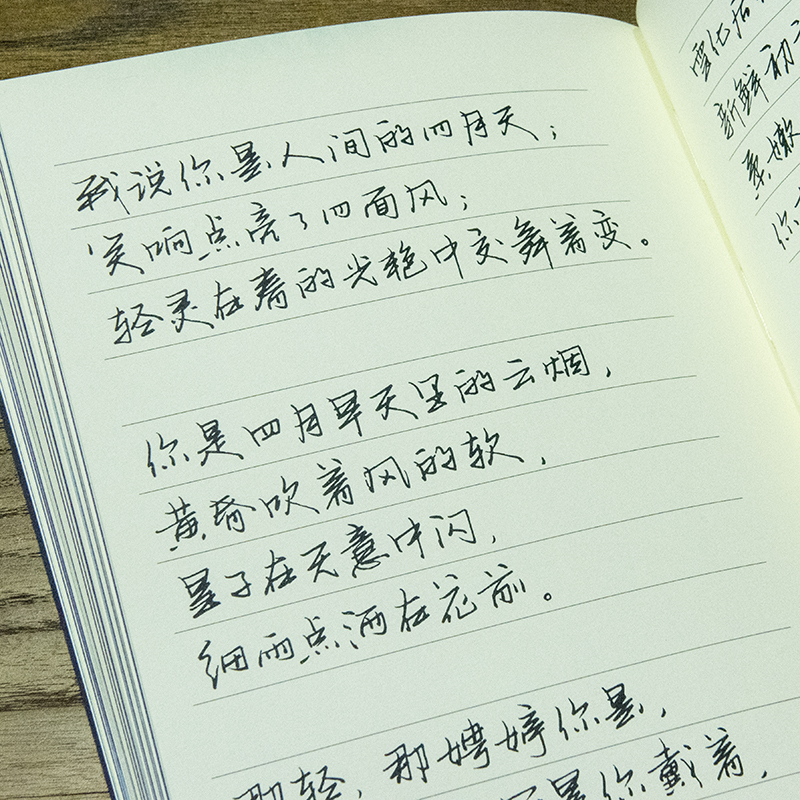 我说你是人间的四月天；
笑响点亮了四面风；
轻灵在春的光艳中交舞着变。
你是四月早天里的云烟，
黄昏吹着风的软，
星子在无意中闪，
细雨点洒在花前。
那轻，那娉婷你是，
是你戴着，
雪化后
新鲜初
柔嫩
你